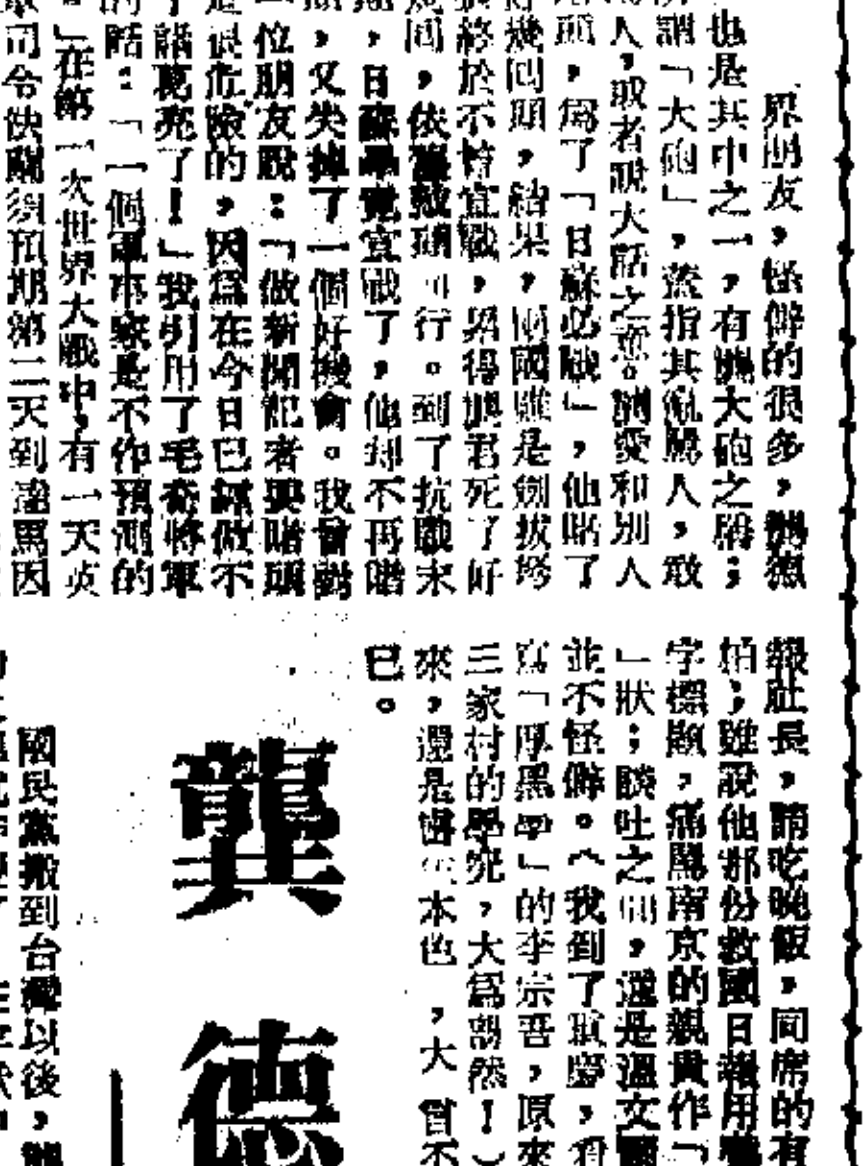 界朋友，怪僻的很多，龔德
也是其中之一，有龔大砲之稱；
謂「大砲」，蓋指其罵人，敢
人，或者說大話之意。龔愛和別人
頭，爲了「日蘇必戰」，他賭了
幾回頭，結果，兩國雖是劍拔弩
終於不曾宣戰，累得龔君死了好
幾回，依舊行。到了抗戰末
期，日蘇畢竟宣戰了，他却不再賭
，又失掉了一個好機會。我曾對
一位朋友說：「做新聞記者要賭頭
是很危險的，因爲在今日已經做不
了！」我引用了毛奇將軍
的話：「一個軍事家是不作預測的
。」在第一次世界大戰中，有一天英
司令預期第二天到達馬因
報社長，請吃晚飯，同席的有
怕；雖說他那份救國日報用
字標題，痛罵南京的親貴作「
」狀；談吐之間，還是溫文爾
並不怪僻。（我到了重慶，看
寫「厚黑學」的李宗吾，原來
三家村的學究，大爲詫然！）
來，還是書生本色，大 不
已。
龔德
國民黨搬到台灣以後，